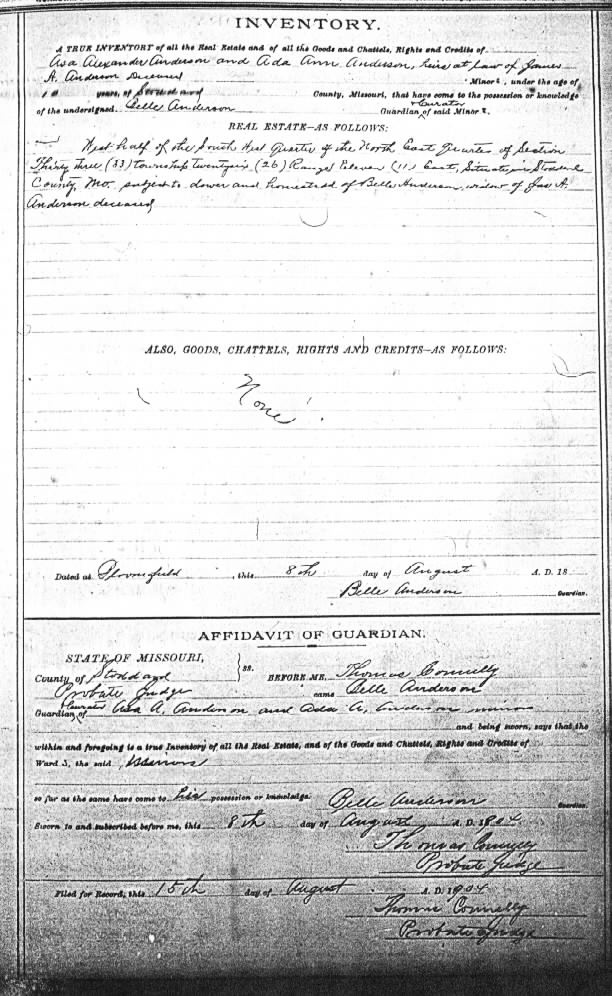 INVENTORY.
A TRUE INVENTORY of all the Real Estate and of all the Goods and Chattels, Rights and Credits of
Asa Alexander Anderson and Ada Ann Anderson, heirs at Law of James
A. Anderson Deceased Minors, under the age of
years, of Stoddard County, Missouri, that have come to the possession or knowledge
of the undersigned. Belle Anderson Guardian & Curator of said Minors.
REAL ESTATE—AS FOLLOWS:
West half of the South West Quarter of the North East Quarter of Section
Thirty Three (33) township twenty six (26) Range Eleven (11) East, Situate in Stoddard
County Mo. subject to dower and homestead of Belle Anderson, widow of Jas A.
Anderson deceased
ALSO, GOODS, CHATTELS, RIGHTS AND CREDITS—AS FOLLOWS:
None
Dated at Bloomfield, this 8th day of August A. D. 18
Belle Anderson Guardian.
AFFIDAVIT OF GUARDIAN.
STATE OF MISSOURI,
County of Stoddard } ss. BEFORE ME, Thomas Connelly
Probate Judge came Belle Anderson
Guardian & Curator of Asa A. Anderson and Ada A. Anderson minors
and being sworn, says that the
within and foregoing is a true Inventory of all the Real Estate, and of the Goods and Chattels, Rights and Credits of
Ward S, the said minors
so far as the same have come to her possession or knowledge. Belle Anderson Guardian.
Sworn to and subscribed before me, this 8th day of August A. D. 1904
Thomas Connelly
Probate Judge
Filed for Record, this 15th day of August A. D. 1904
Thomas Connelly
Probate Judge